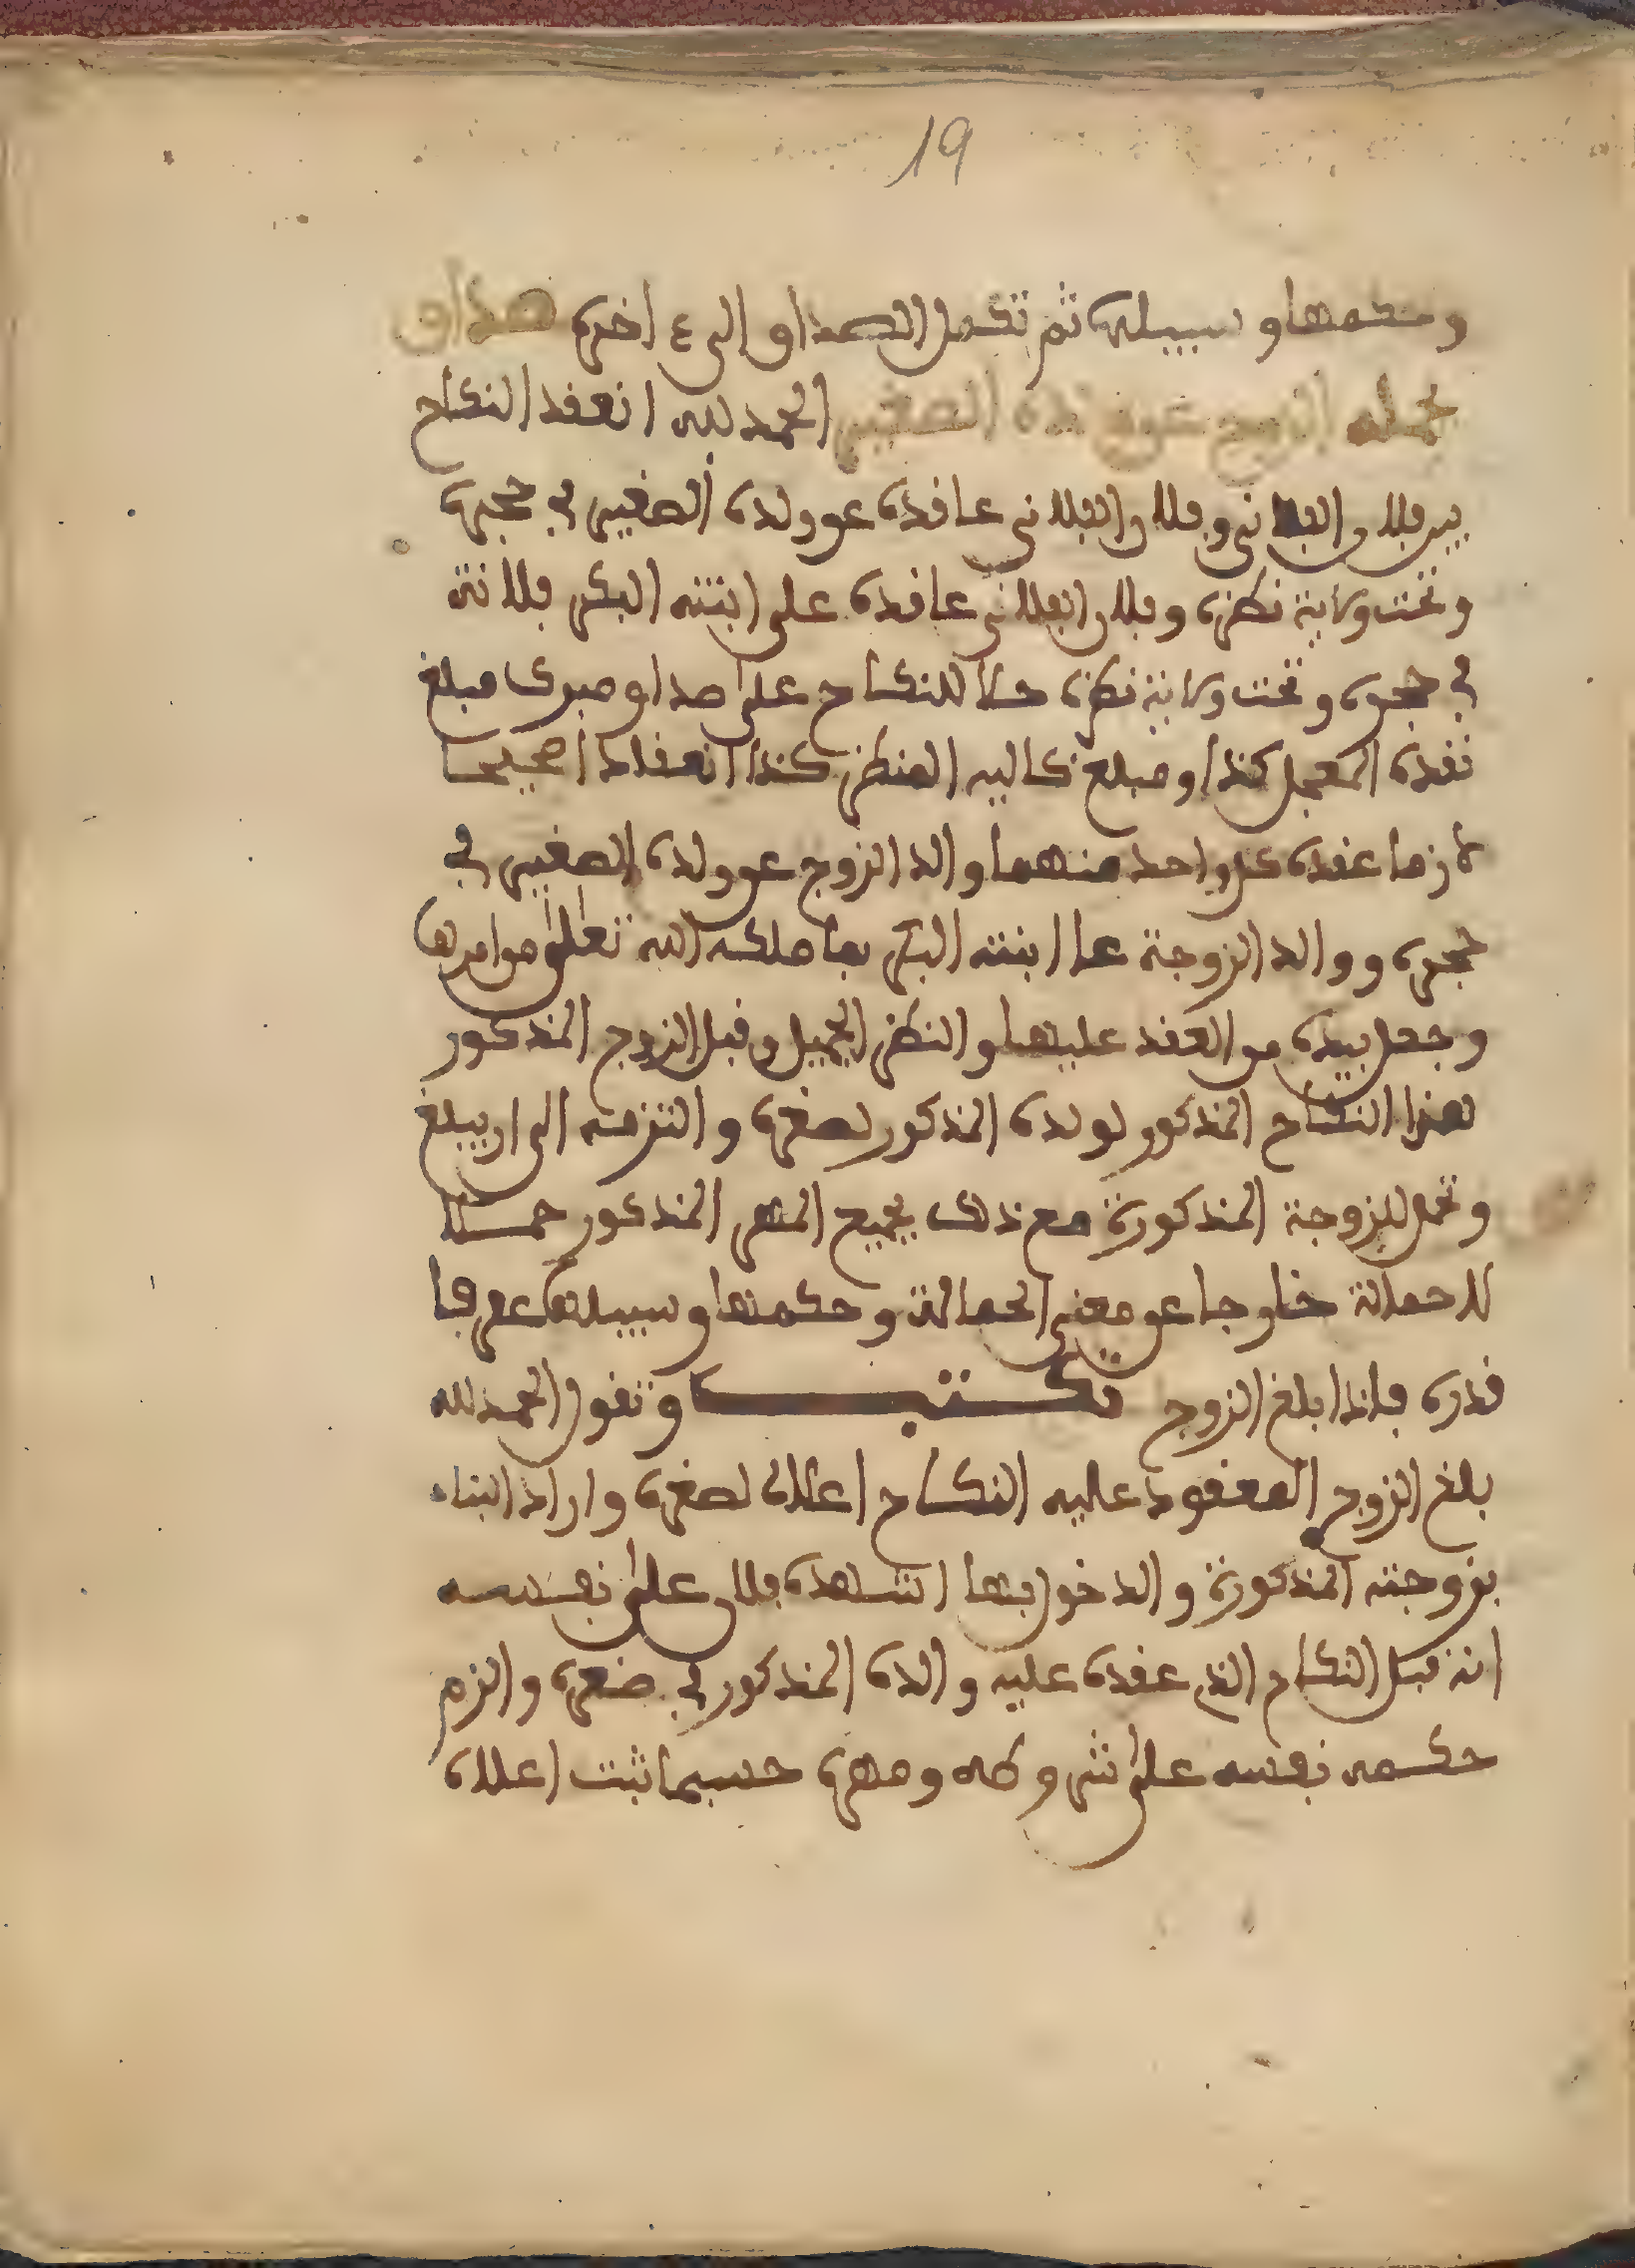 19
وحكمها وسبيله ثم تكمل الصداق الى ءاخره صداق
تحمله الزوج عن ولده الصغير الحمد لله انعقد النكاح
بين فلان الفلاني وفلان الفلاني عاقده عن ولده الصغير في حجره
وتحت ولاية نظره وفلان الفلاني عاقده على ابنته البكر فلانة
في حجره وتحت ولاية نظره حالا للنكاح على صداق مبرك مبلغ
نقده المعجل كذا ومبلغ كاليه المنظر كذا انعقادا صحيحا
لازما عقده كل واحد منهما والد الزوج عن ولده الصغير في
حجره ووالد الزوجة على ابنته البكر بما ملكه الله تعلى من امرها
وجعل بيده من العقد عليها والنظر الجميل وقبل الزوج المذكور
هذا النكاح المذكور لولده المذكور لصغره والتزمه الى ان يبلغ
وتحمل للزوجة المذكورة مع ذلك بجميع المهر المذكور حملا
لا حمالة خارجا عن معنى الحمالة وحكمها وسبيلها عرفا
قدره فاذا بلغ الزوج تكتب وتقول الحمد لله
بلغ الزوج المعقود عليه النكاح اعلاه لصغره واراد البناء
بزوجته المذكورة والدخول بها اشهد فلان على نفسه
انه قبل النكاح الذي عقده عليه والده المذكور في صغره والزم
حكمه نفسه على شروطه ومهره حسبما ثبت اعلاه